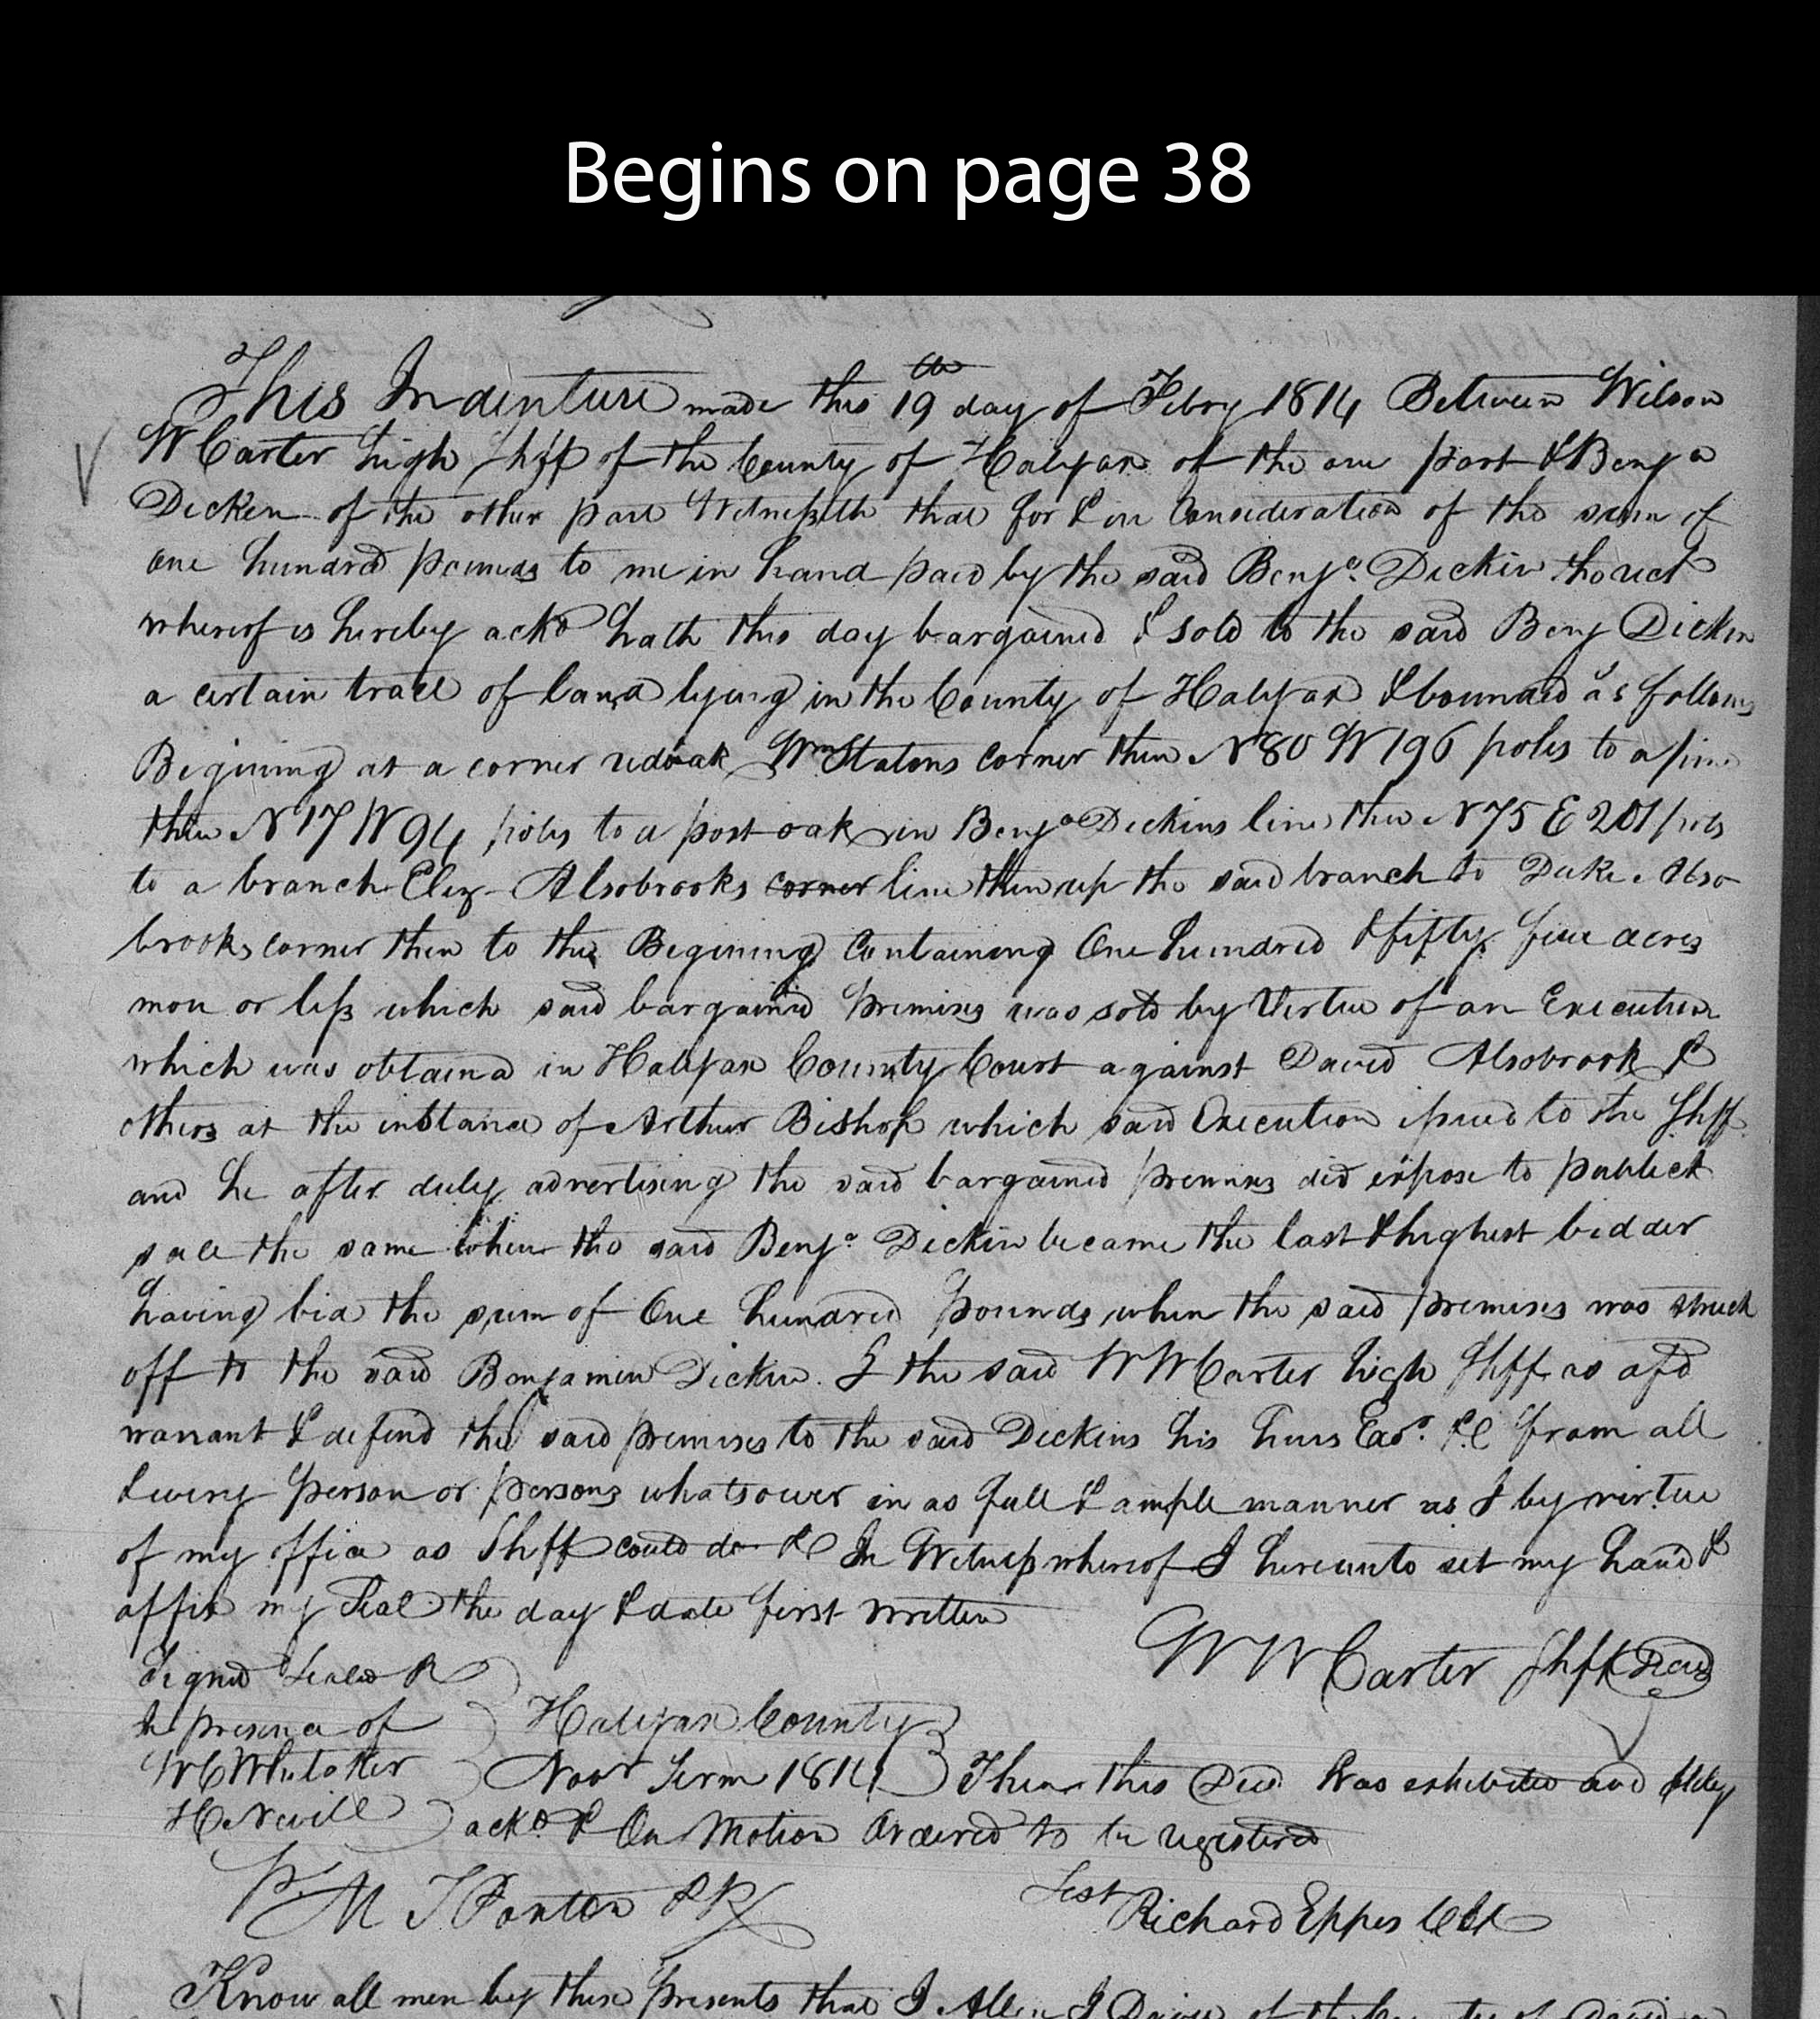 Begins on page 38
This Indenture made this 19th day of Febry 1814 Between Wilson
W Carter high Shff of the County of Halifax of the one part & Benja
Dicken of the other part Witnesseth that for & in Consideration of the sum of
one hundred pounds to me in hand paid by the said Benja. Dickin the rect
whereof is hereby ackd hath this day bargained & sold to the said Benj Dicken
a certain tract of land lying in the County of Halifax & bounded as follows
Begining at a corner redoak Wm Statons corner then N 80 W 196 poles to a pine
then N 17 W 94 poles to a post oak in Benja Dickins line then N 75 E 201 pols
to a branch Eliz Alsobrooks corner line then up the said branch to Duke Also
brooks corner then to the Begining Containing One hundred & fifty five acres
more or less which said bargained premises was sold by Virtue of an Execution
which was obtaind in Halifax County Court against David Alsobrook &
others at the instance of Arthur Bishop which said Execution issued to the Shff
and he after duly advertising the said bargained premises did expose to publick
sale the same when the said Benja. Dickin became the last & highest bidder
having bid the sum of One hundred pounds when the said premises was struck
off to the said Benjamin Dickin. I the said W W Carter high Shff as afd
warrant & defend the said premises to the said Dickins his heirs Exrs. &c from all
& every person or persons whatsoever in as full & ample manner as I by virtue
of my office as Shff could do &c In Witness whereof I hereunto set my hand &
affix my Seal the day & date first written
W W Carter Shff Seal
Signed Sealed &
In presence of
W C Whitaker
H Nevill
Halifax County
Novr Term 1814 Then this Deed was exhibited and duly
ackd. & On Motion Ordered to be registered
Pr. M T Ponton PR
Test Richard Eppes Clk
Know all men by these presents that I Allen J Davie of the County of